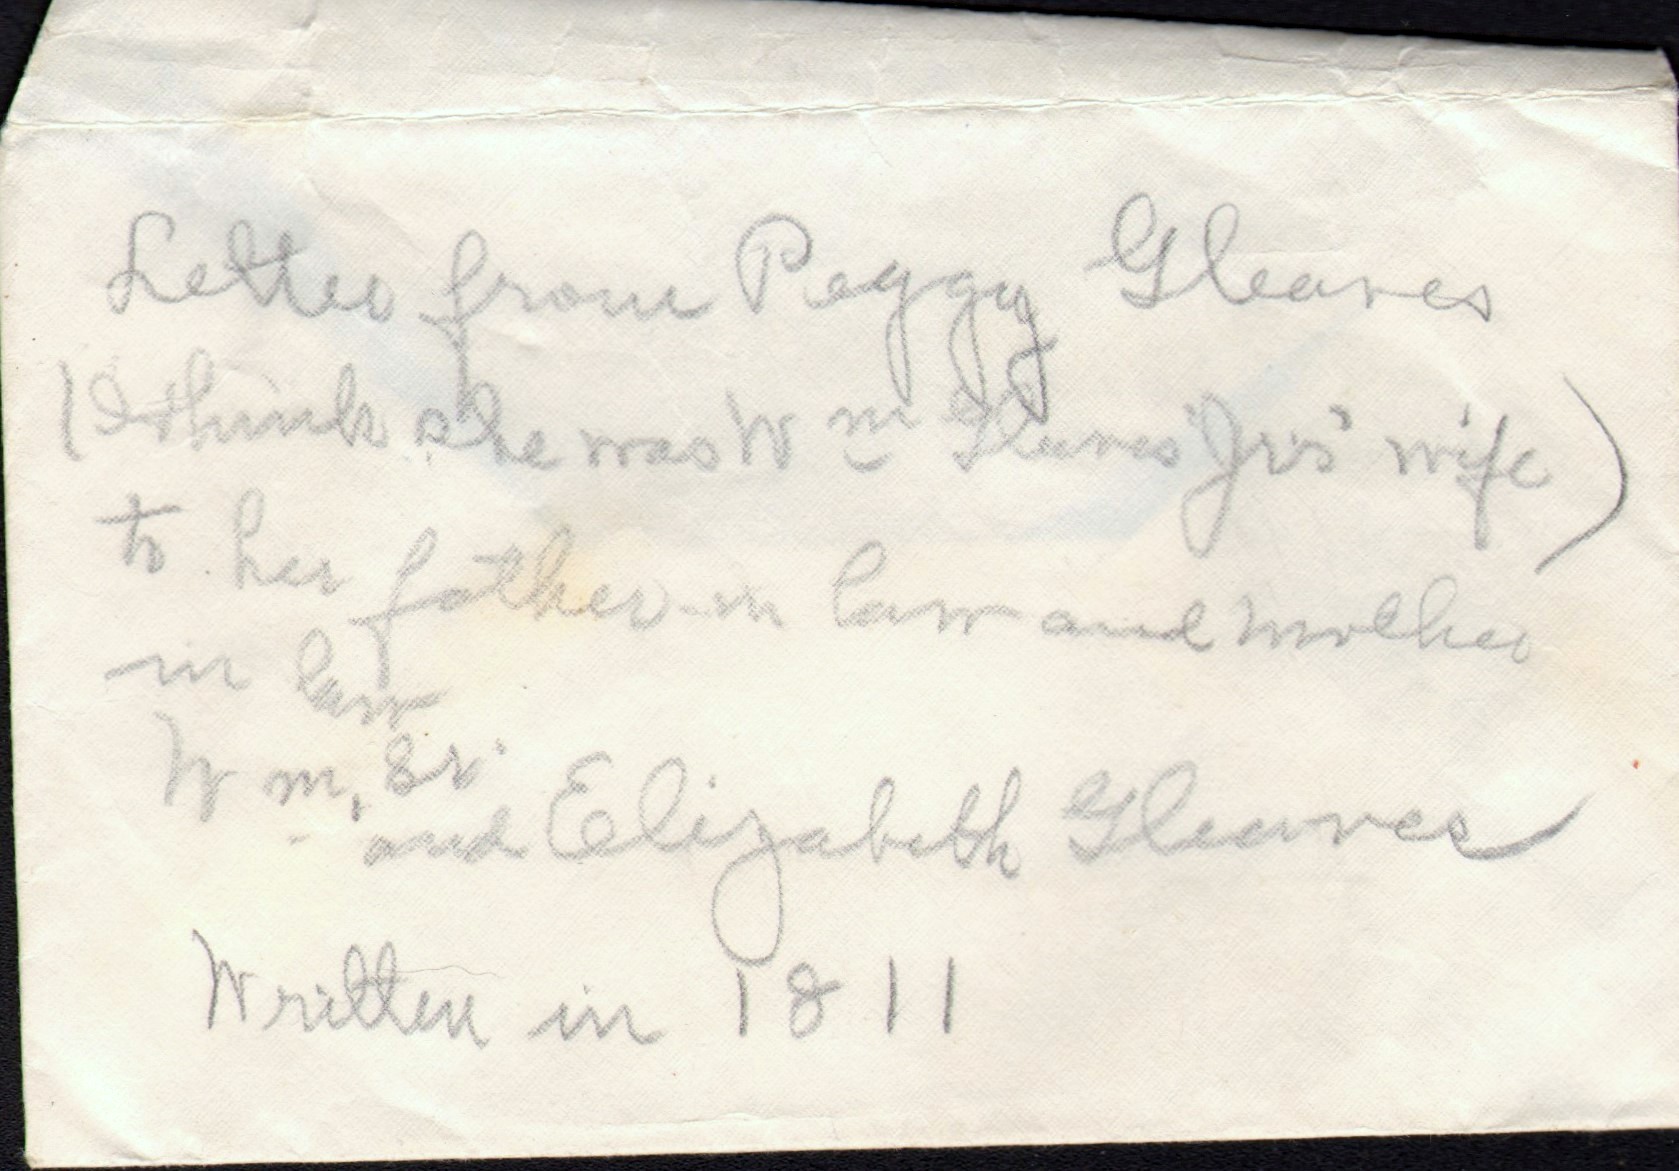 Letter from Peggy Gleaves
(I think she was Wm Gleaves Jr's' wife)
to her father-in law and mother
in law
Wm, Sr.
and Elizabeth Gleaves
Written in 1811